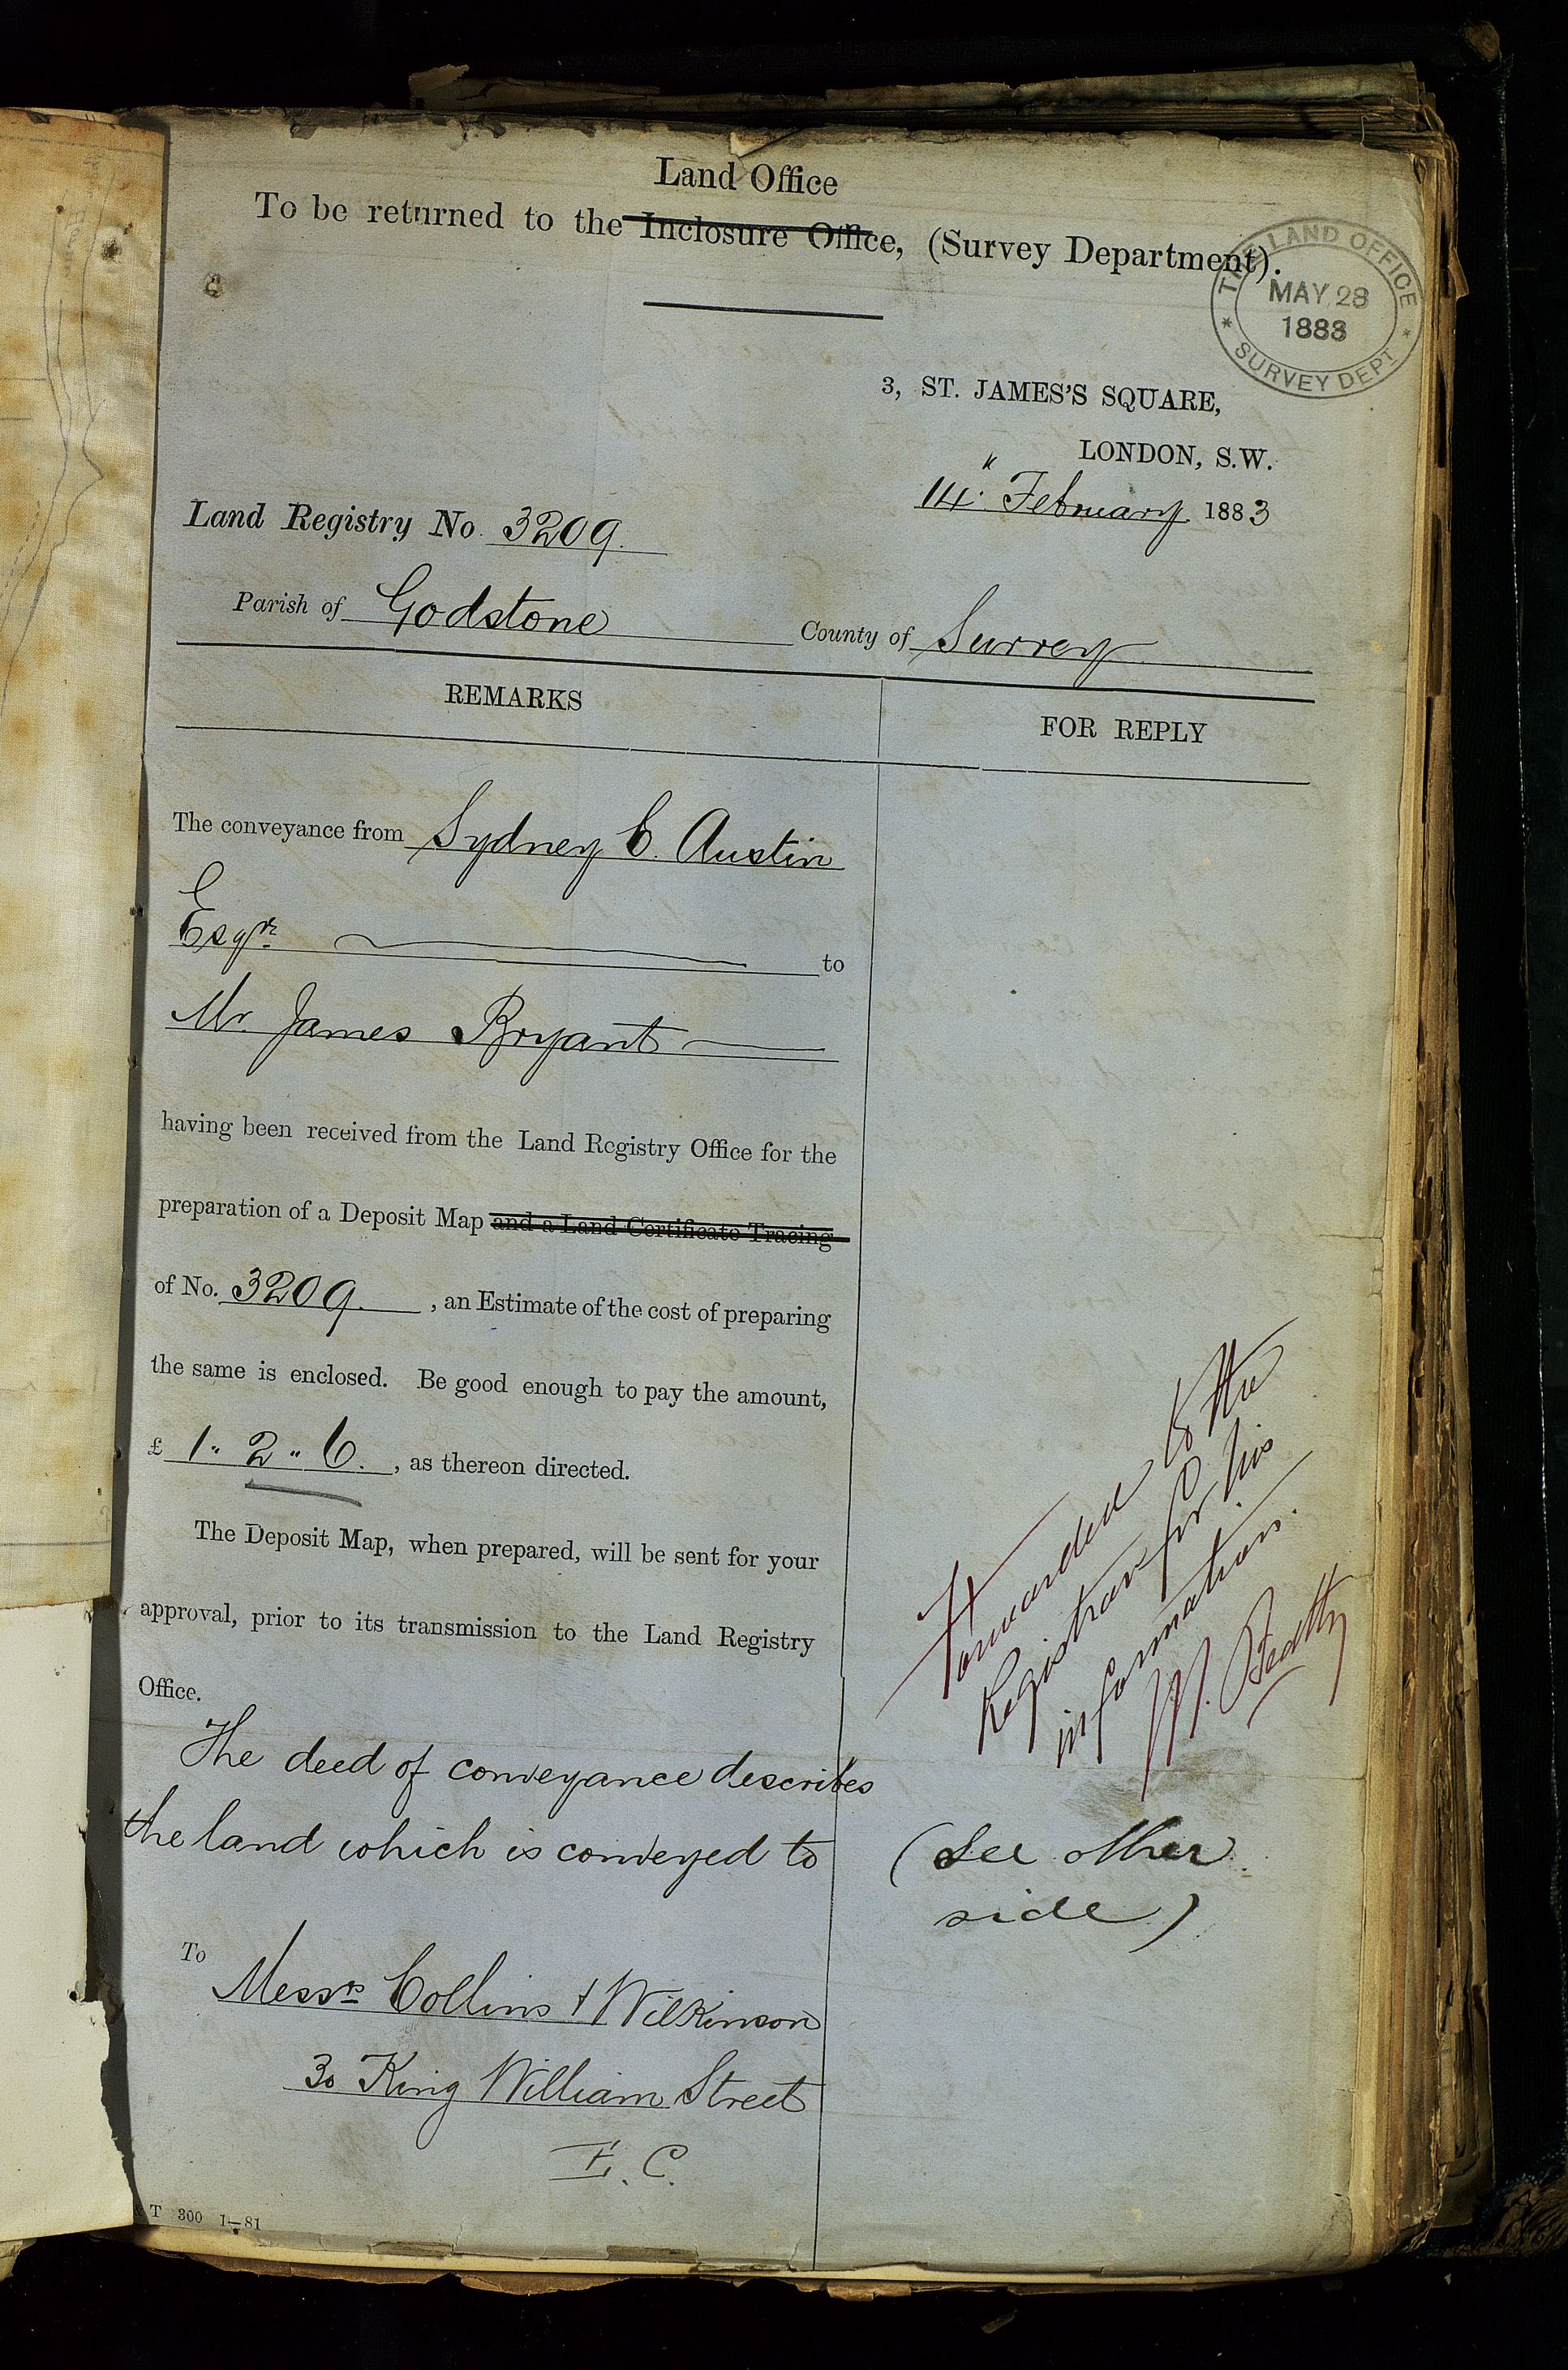 Land Office
To be returned to the Inclosure Office, (Survey Department).
THE LAND OFFICE
MAY 28
1883
* SURVEY DEPT *
3, ST. JAMES'S SQUARE,
LONDON, S.W.
14" February 1883
Land Registry No. 3209.
Parish of Godstone County of Surrey
REMARKS
FOR REPLY
The conveyance from Sydney C. Austin
Esqre. to
Mr. James Bryant
having been received from the Land Registry Office for the
preparation of a Deposit Map and a Land Certificate Tracing
of No. 3209. , an Estimate of the cost of preparing
the same is enclosed. Be good enough to pay the amount,
£ 1" 2" 6. , as thereon directed.
The Deposit Map, when prepared, will be sent for your
approval, prior to its transmission to the Land Registry
Office.
The deed of conveyance describes
the land which is conveyed to
Forwarded to the
Registrar for his
information.
W. Beatty
(See other
side)
To
Messrs Collins & Wilkinson
30 King William Street
E.C.
& T 300 1—81